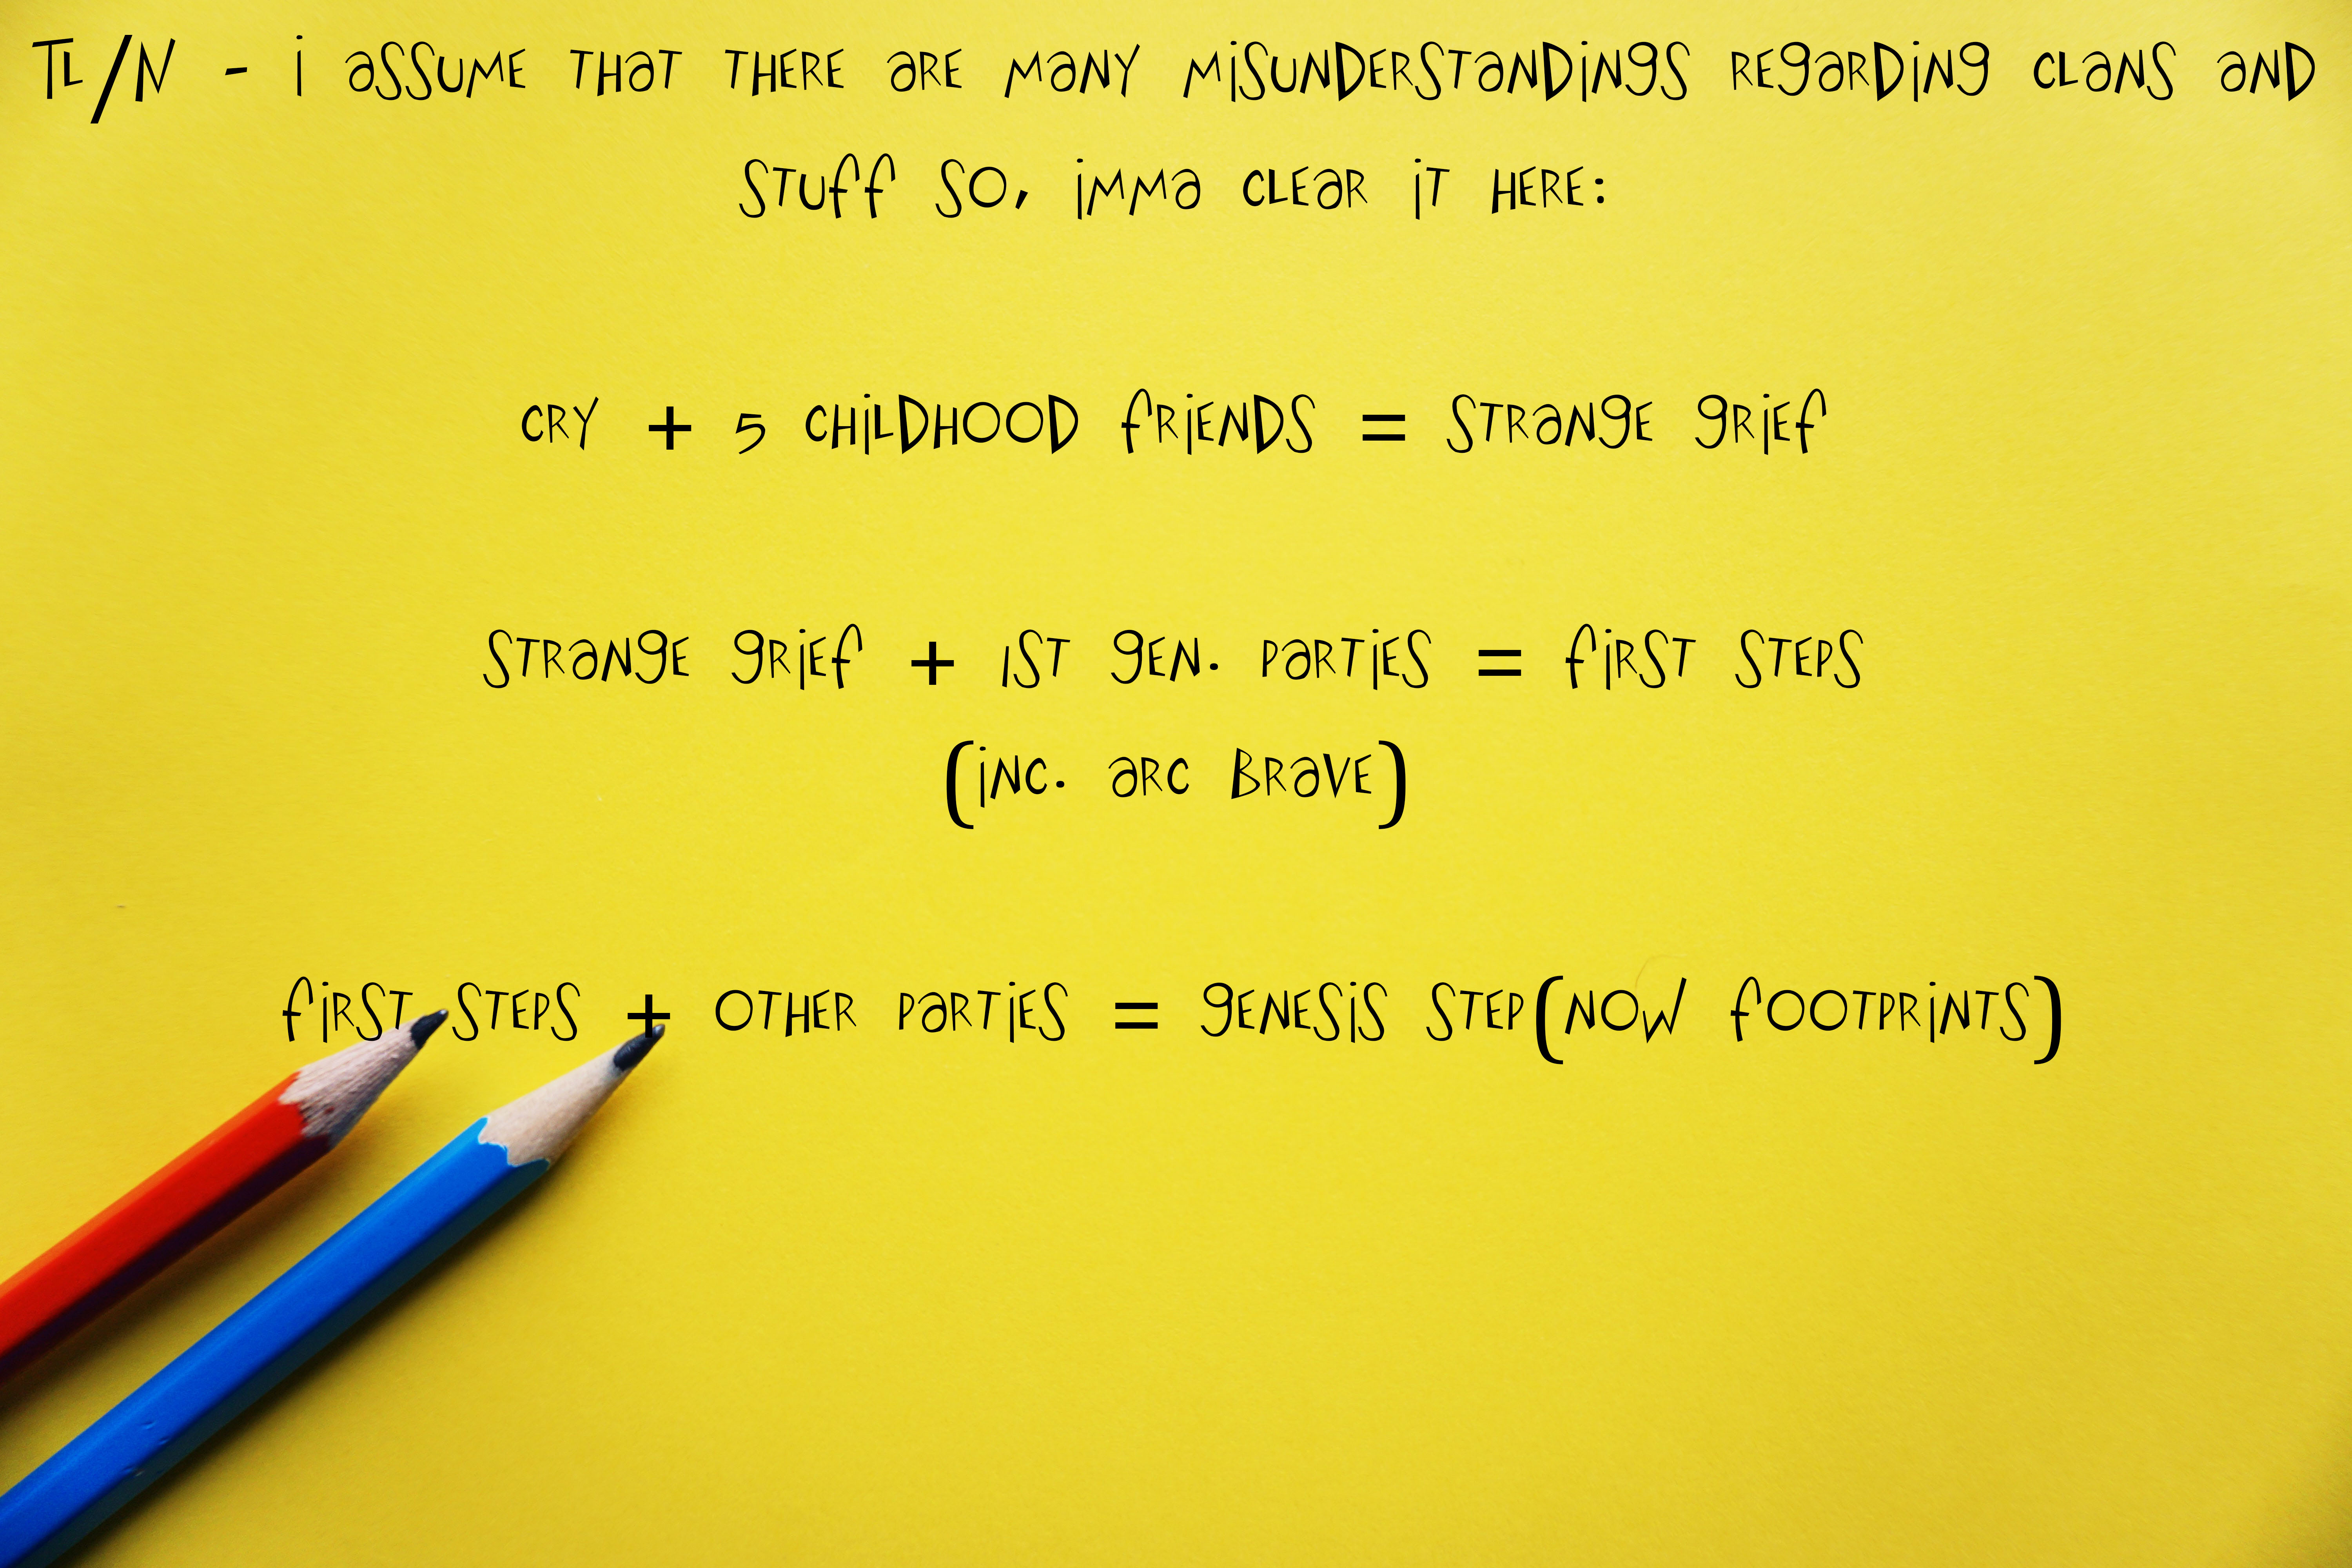 TL/N - i aSSUME THaT THERE aRE MaNY MiSUNDERSTaNDiNgS REgaRDiNg CLaNS aND
STUfF SO, iMMa CLEaR iT HERE:
CRY + 5 CHiLDHOOD fRiENDS = STRaNgE gRiEf
STRaNgE gRiEf + 1ST gEN. PaRTiES = fiRST STEPS
(iNC. aRC BRaVE)
fiRST STEPS + OTHER PaRTiES = gENESiS STEP(NOW fOOTPRiNTS)